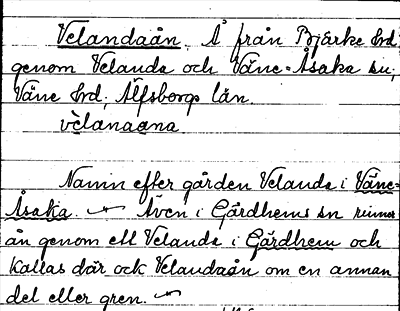 Velandaån. Å från Bjärke hrd
genom Velanda och Väne-Åsaka sn,
Väne hrd, Älfsborgs län.
vèlanaana
Namn efter gården Velanda i Väne-
Åsaka. Även i Gärdhems sn rinner
ån genom ett Velanda i Gärdhem och
kallas där ock Velandaån om en annan
del eller gren.